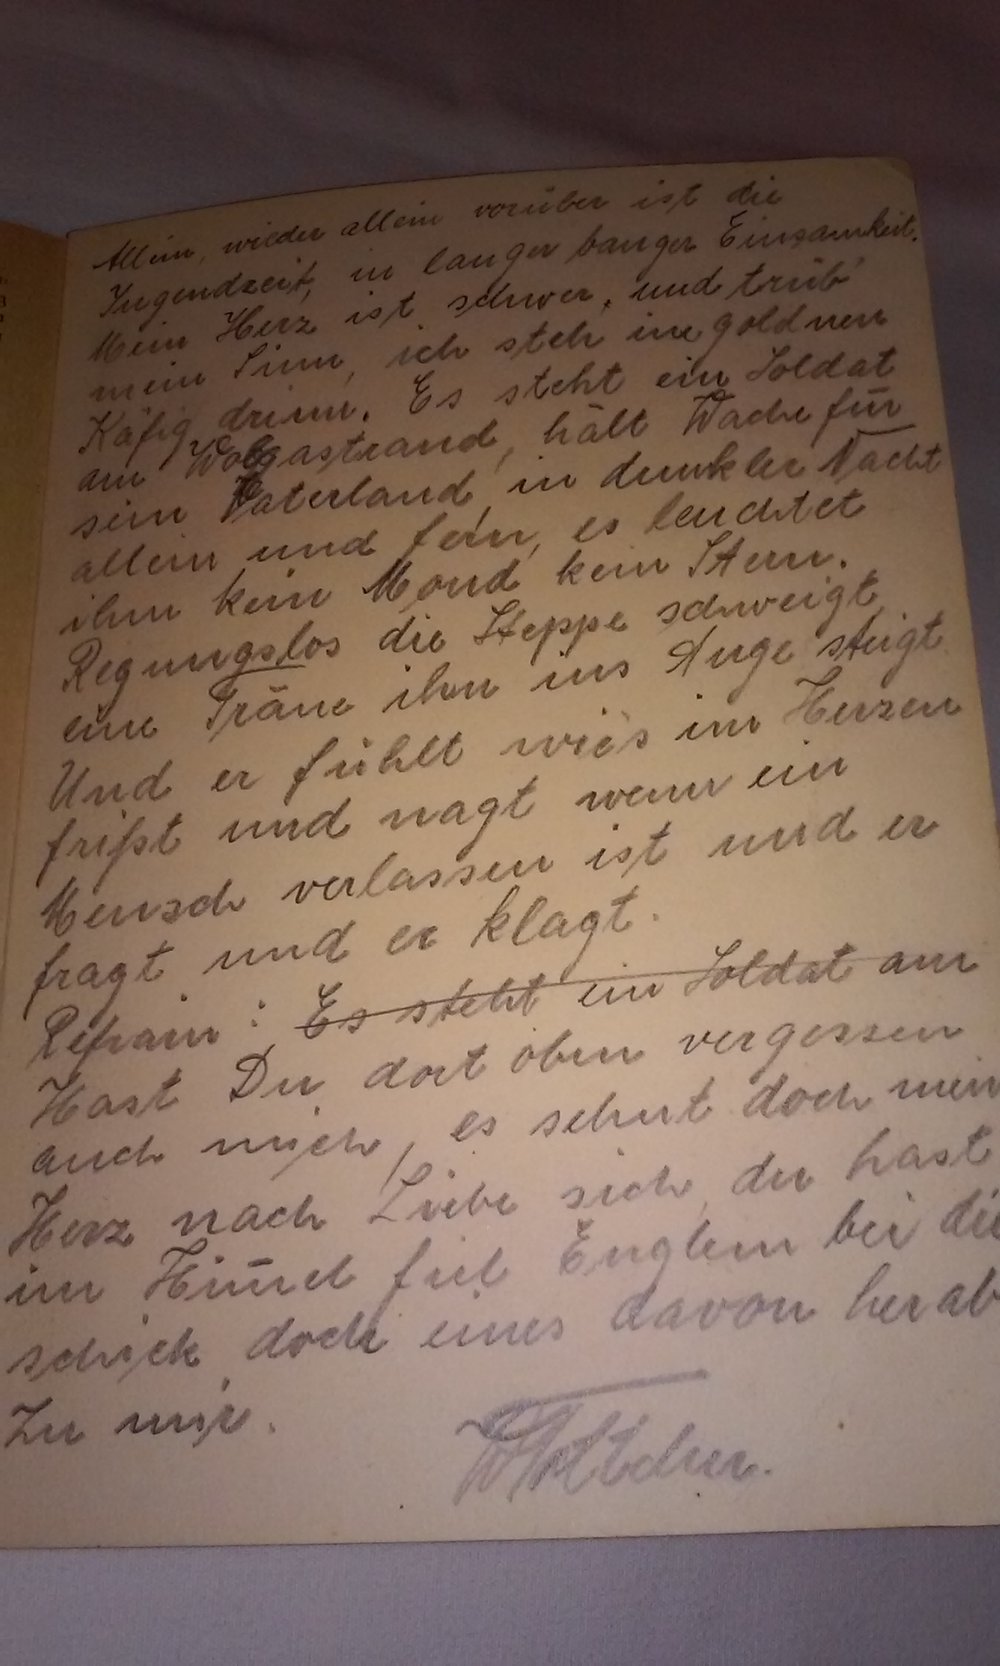 Allein, wieder allein vorüber ist die
Jugendzeit, in langer banger Einsamkeit.
Mein Herz ist schwer, und trüb
mein Sinn, ich steh im goldnen
Käfig drinn. Es steht ein Soldat
am Wolgastrand, hält Wache für
sein Vaterland, in dunkler Nacht
allein und fern, es leuchtet
ihm kein Mond kein Stern.
Regungslos die Steppe schweigt,
eine Träne ihm ins Auge steigt
Und er fühlt wie's im Herzen
frißt und nagt wenn ein
Mensch verlassen ist und er
fragt und er klagt.
Refrain: Es steht ein Soldat am
Hast Du dort oben vergessen
auch mich, es sehnt doch mein
Herz nach Liebe sich, du hast
im Him̅el fiel Englein bei dir
schick doch eines davon herab
Zu mir.